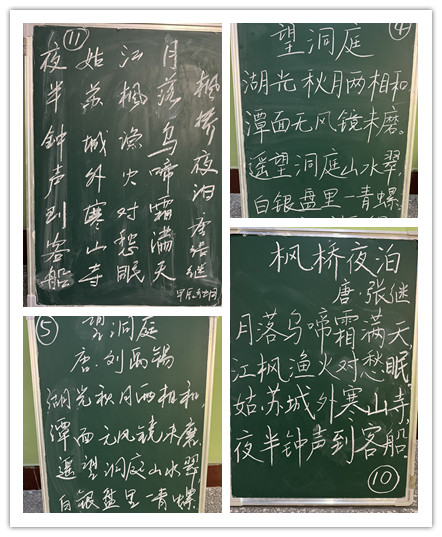 ⑪
枫桥夜泊 唐张继
月落乌啼霜满天
江枫渔火对愁眠
姑苏城外寒山寺
夜半钟声到客船
④
望洞庭
湖光秋月两相和
潭面无风镜未磨。
遥望洞庭山水翠,
白银盘里一青螺
⑤
望洞庭
唐·刘禹锡
湖光秋月两相和,
潭面无风镜未磨,
遥望洞庭山水翠,
白银盘里一青螺
枫桥夜泊
唐·张继
月落乌啼霜满天,
江枫渔火对愁眠,
姑苏城外寒山寺,
夜半钟声到客船
⑩